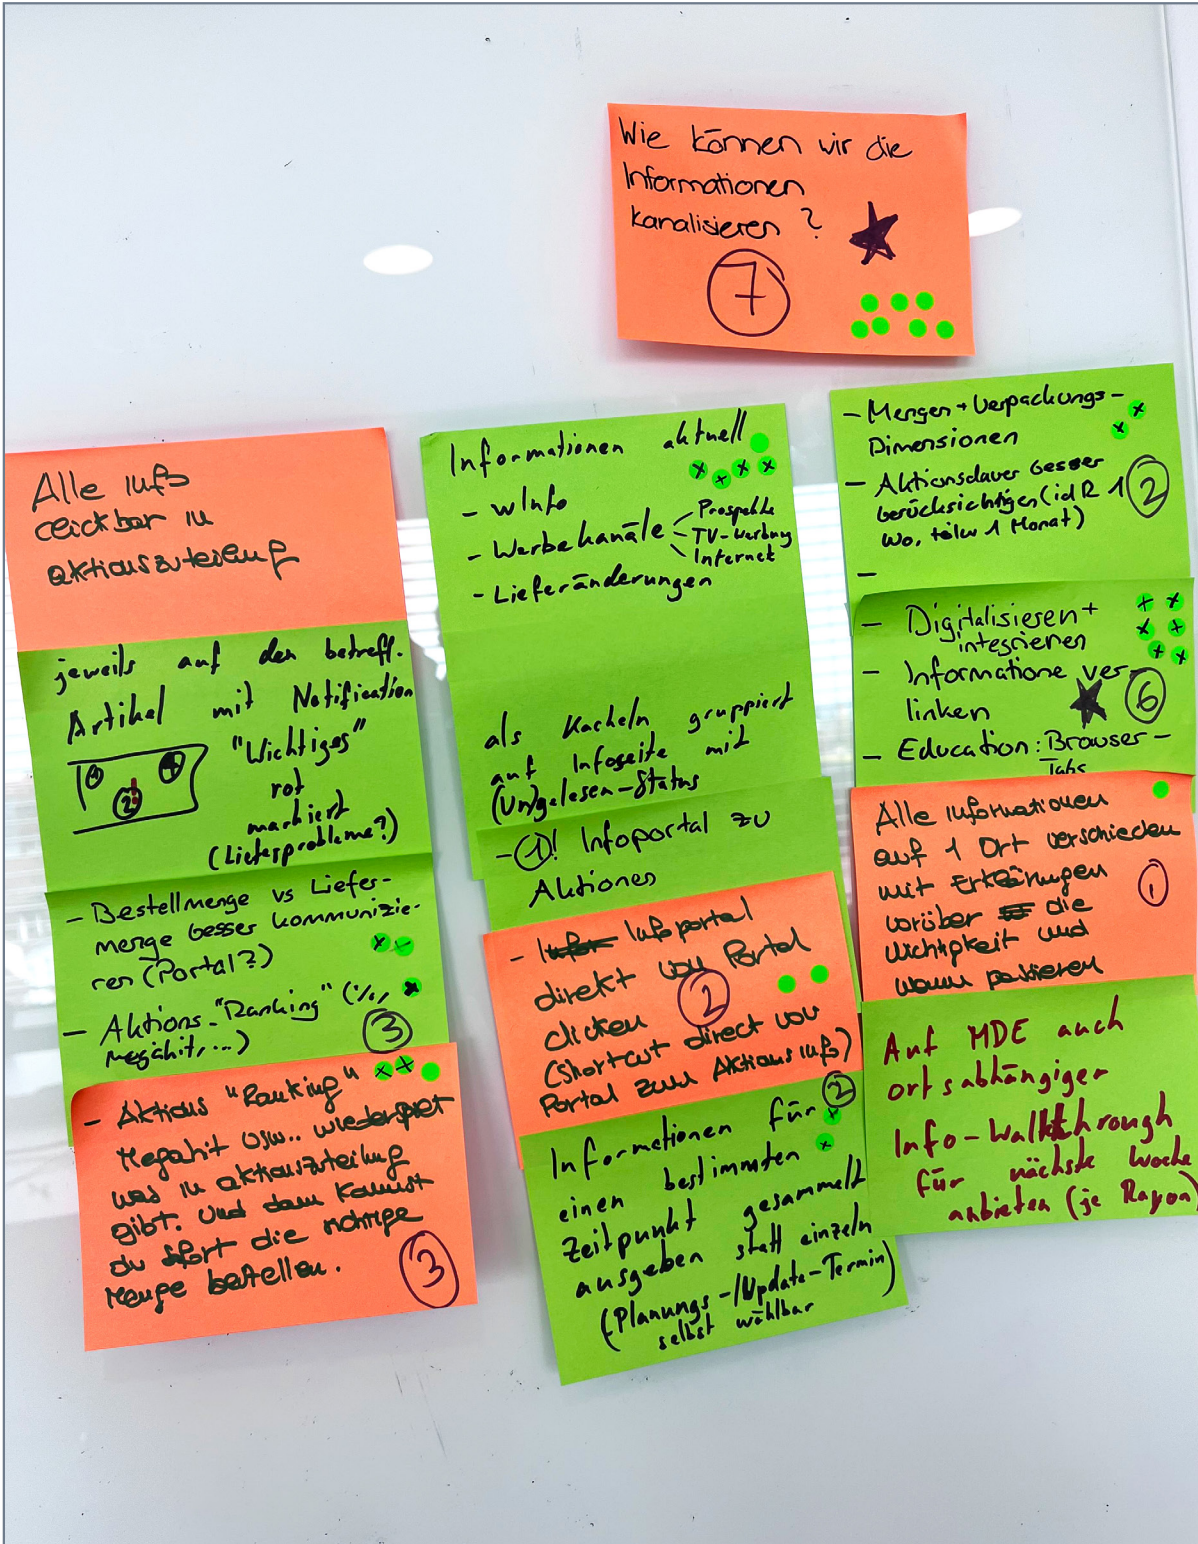 Wie können wir die
Informationen
kanalisieren ?
7
Alle Infos
clickbar in
aktionszuteilung
jeweils auf den betreff.
Artikel mit Notification
"Wichtiges"
rot
markiert
(Lieferprobleme?)
2
- Bestellmenge vs Liefer-
menge besser kommunizie-
ren (Portal?)
- Aktions-"Ranking" (%,
megahit, ...)
3
- Aktions "Ranking"
Megahit usw.. wiederspiet
was in aktionszuteilung
gibt. Und dann kannst
du sofort die richtige
Menge bestellen.
3
Informationen aktuell
- wInfo
- Werbekanäle
Prospekte
TV-Werbung
Internet
- Lieferänderungen
als Kacheln gruppiert
auf Infoseite mit
(Un)gelesen-Status
- 1! Infoportal zu
Aktionen
- Infoportal
direkt von Portal
clicken
2
(Shortcut direct von
Portal zum Aktions Info)
2
Informationen für
einen bestimmten
Zeitpunkt gesammelt
ausgeben statt einzeln
(Planungs-/Update-Termin)
selbst wählbar
- Mengen + Verpackungs-
Dimensionen
- Aktionsdauer besser
berücksichtigen (idR 1
Wo, teilw 1 Monat)
2
-
- Digitalisieren +
integrieren
- Informatione ver-
linken
6
- Education: Browser-
Tabs
Alle Informationen
auf 1 Ort verschieden
mit Erklärungen
vorüber die
wichtigkeit und
wann passieren
1
Auf MDE auch
ortsabhängiger
Info-Walkthrough
für nächste Woche
anbieten (je Rayon)